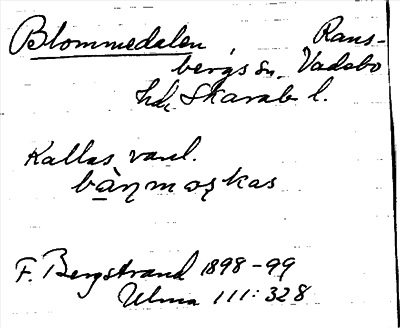 Blommedalen, Rans-
bergs sn, Vadsbo
hd, Skarab. l.
Kallas vanl.
F. Bergstrand 1898-99
Ulma 111:328